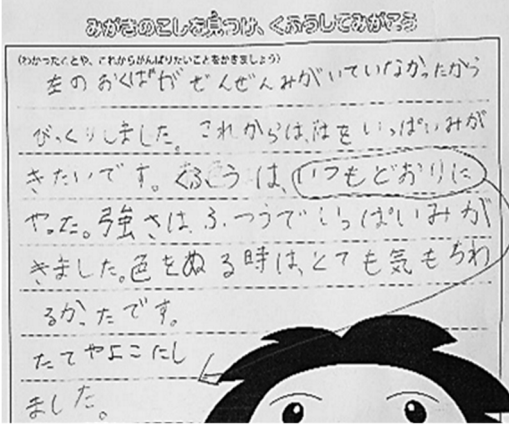 みがきのこしを見つけ、くふうしてみがこう
(わかったことや、これからがんばりたいことをかきましょう)
左のおくばがぜんぜんみがいていなかったから
びっくりしました。これからは、はをいっぱいみが
きたいです。くふうは、いつもどおりに
やった。強さは、ふつうでいっぱいみが
きました。色をぬる時は、とても気もちわ
るかったです。
たてやよこにし
ました。